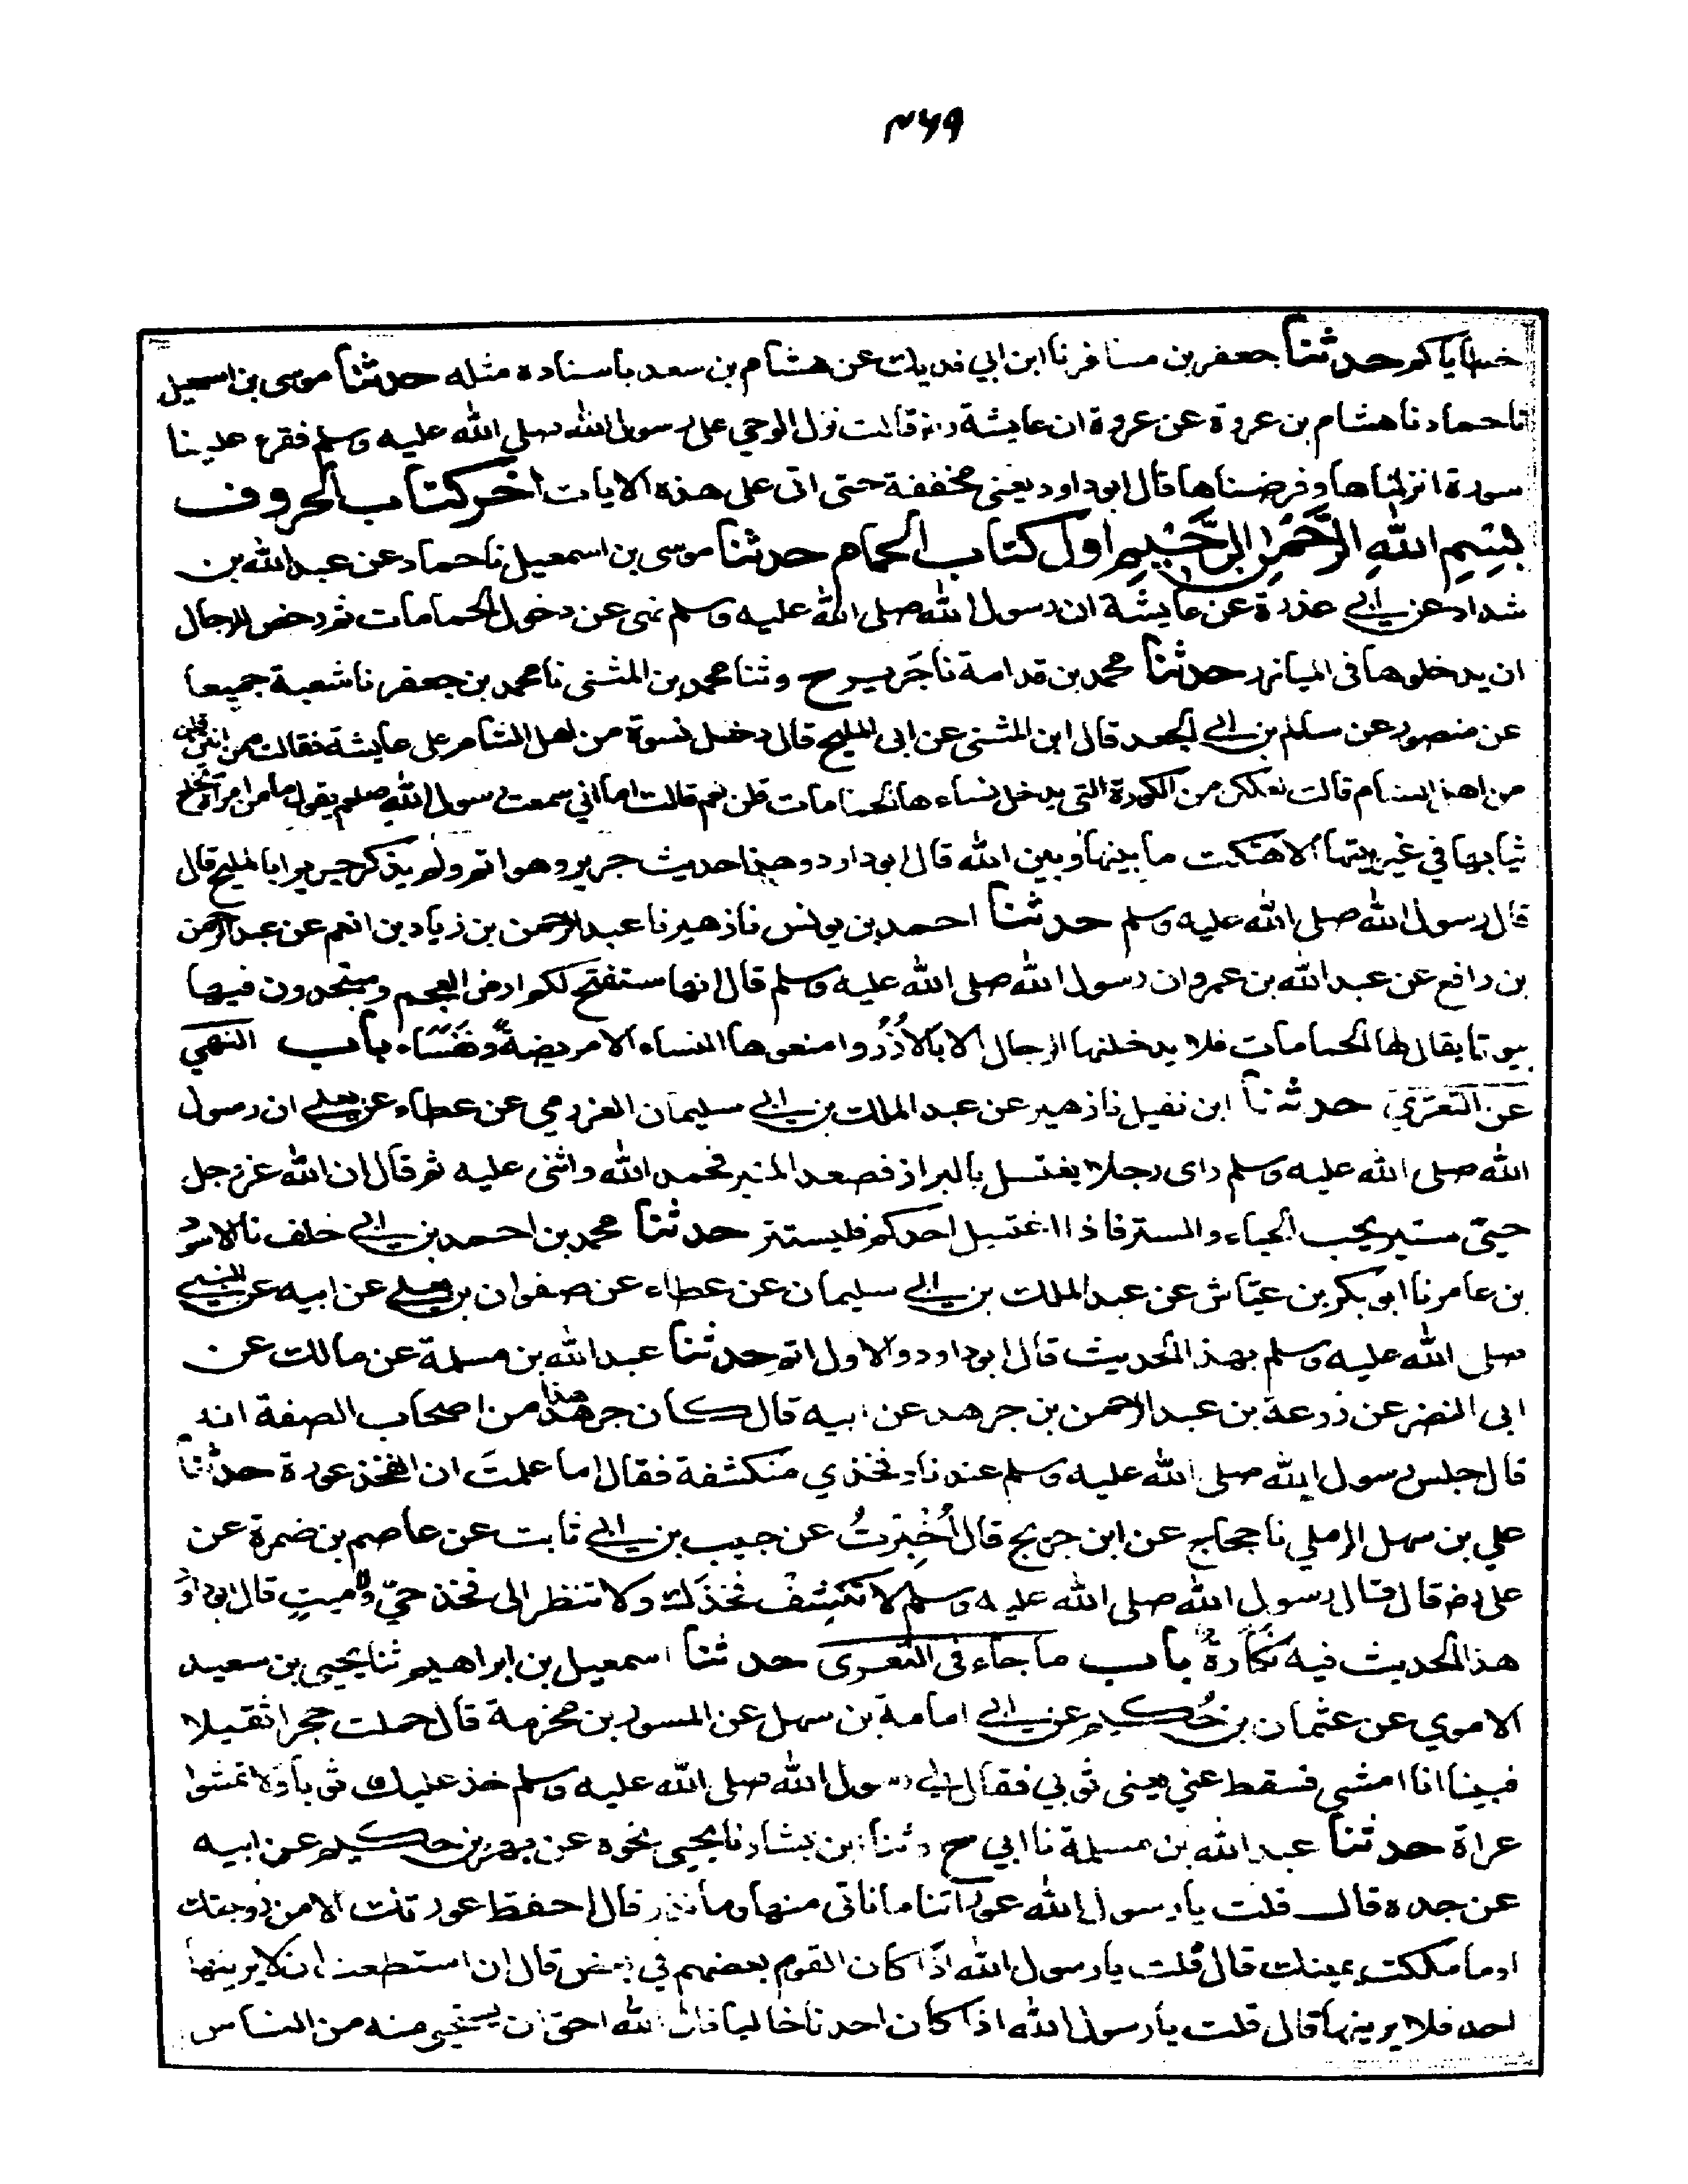 ۴۶۹
خطاياكم حدثنا جعفر بن مسافر نا ابن ابي فديك عن هشام بن سعد باسناده مثله حدثنا موسى بن اسمعيل
نا حماد نا هشام بن عروة عن عروة ان عايشة رض قالت نزل الوحي على رسول الله صلى الله عليه وسلم فقرء علينا
سورة انزلناها وفرضناها قال ابوداود يعنى مخففة حتى اتى على هذه الايات اخر كتاب الحروف
بِسْمِ اللهِ الرَّحْمٰنِ الرَّحِيْمِ اول كتاب الحمام حدثنا موسى بن اسمعيل نا حماد عن عبد الله بن
شداد عن ابي عذرة عن عايشة ان رسول الله صلى الله عليه وسلم نهى عن دخول الحمامات ثم رخص للرجال
ان يدخلوها فى الميازر حدثنا محمد بن قدامة نا جَرير ح وثنا محمد بن المثنى نا محمد بن جعفر نا شعبة جميعا
عن منصور عن سالم بن ابي الجعد قال ابن المثنى عن ابى المليح قال دخل نسوة من اهل الشام على عايشة فقالت ممن انتن قلن
من اهل الشام قالت لعلكن من الكورة التى يدخل نساءها الحمامات قلن نعم قالت اما اني سمعت رسول الله صلعم يقول ما من امرأة تخلع
ثيابها في غير بيتها الا هتكت ما بينها وبين الله قال ابوداود وهذا حديث جرير وهو اتم ولم يذكر جرير ابا المليح قال
قال رسول الله صلى الله عليه وسلم حدثنا احمد بن يونس نا زهير نا عبد الرحمن بن زياد بن انعم عن عبد الرحمن
بن رافع عن عبد الله بن عمرو ان رسول الله صلى الله عليه وسلم قال انها ستفتح لكم ارض العجم وستجدون فيها
بيوتا يقال لها الحمامات فلا يدخلنها الرجال الا بالاُزُر وامنعوها النساء الا مريضةً ونفساء باب النهي
عن التعرّي حدثنا ابن نفيل نا زهير عن عبد الملك بن ابي سليمان العرزمي عن عطاء عن يعلى ان رسول
الله صلى الله عليه وسلم راى رجلا يغتسل بالبراز فصعد المنبر فحمد الله واثنى عليه ثم قال ان الله عز وجل
حيّ ستير يحب الحياء والستر فاذا اغتسل احدكم فليستتر حدثنا محمد بن احمد بن ابي خلف نا الاسود
بن عامر نا ابو بكر بن عيّاش عن عبد الملك بن ابي سليمان عن عطاء عن صفوان بن يعلى عن ابيه عن النبي
صلى الله عليه وسلم بهذا الحديث قال ابوداود والاول اتم حدثنا عبد الله بن مسلمة عن مالك عن
ابى النضر عن زرعة بن عبد الرحمن بن جرهد عن ابيه قال كان جرهد هذا من اصحاب الصفة انه
قال جلس رسول الله صلى الله عليه وسلم عندنا وفخذي منكشفة فقال اما علمتَ ان الفخذ عورة حدثنا
علي بن سهل الرملي نا حجاج عن ابن جريج قال اُخْبِرْتُ عن حبيب بن ابي ثابت عن عاصم بن ضمرة عن
على رض قال قال رسول الله صلى الله عليه وسلم لا تكشِفْ فخذَك ولا تنظر الى فخذ حيّ ولا ميتٍ قال ابوداود
هذا الحديث فيه نَكَارةٌ باب ما جاء فى التعري حدثنا اسمعيل بن ابراهيم ثنا يحيى بن سعيد
الاموي عن عثمان بن حُكيم عن ابي امامة بن سهل عن المسور بن مخرمة قال حملت حجرا ثقيلا
فبينا انا امشي فسقط عني يعنى ثوبي فقال لي رسول الله صلى الله عليه وسلم خذ عليك ثوبك ولا تمشوا
عراة حدثنا عبد الله بن مسلمة نا ابي ح وثنا ابن بشار نا يحيى نحوه عن بهز بن حكيم عن ابيه
عن جده قال قلت يا رسول الله عوراتنا ما ناتى منها وما نذر قال احفظ عورتك الا من زوجتك
او ما ملكت يمينك قال قلت يا رسول الله اذا كان القوم بعضهم في بعض قال ان استطعت ان لا يرينها
احد فلا يرينها قال قلت يا رسول الله اذا كان احدنا خاليا قال الله احق ان يستحيى منه من الناس